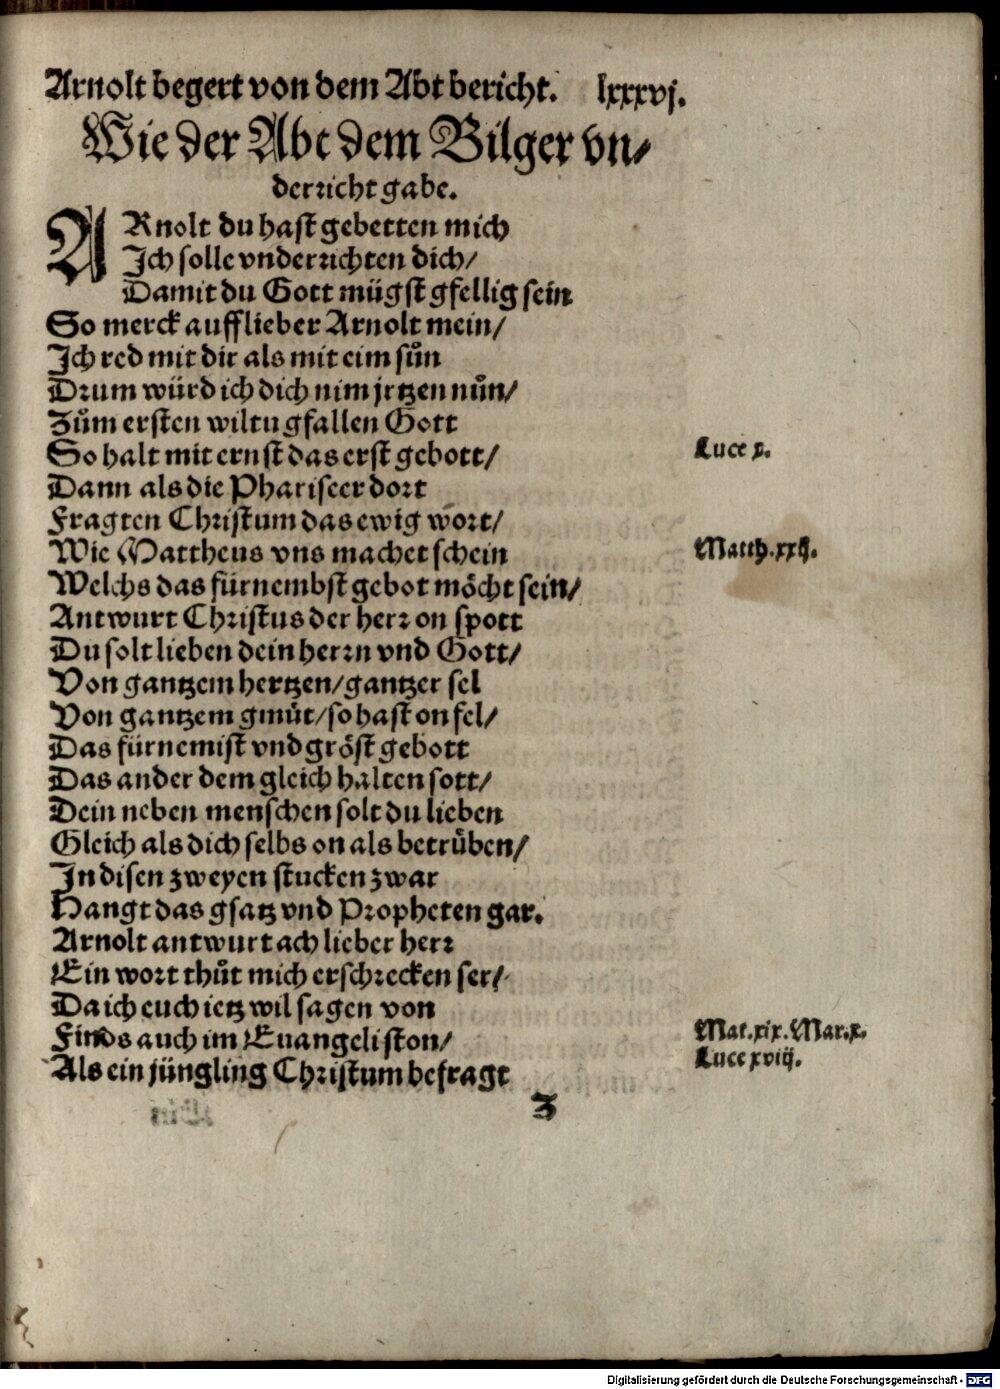 Arnolt begert von dem Abt bericht. lxxxvj.
Wie der Abt dem Bilger vn⸗
derricht gabe.
ARnolt du hast gebetten mich
Jch solle vnderrichten dich/
Damit du Gott mügst gfellig sein
So merck auff lieber Arnolt mein/
Jch red mit dir als mit eim sůn
Drum würd ich dich nim jrtzen nůn/
Zům ersten wiltu gfallen Gott
So halt mit ernst das erst gebott/
Luce x.
Dann als die Phariseer dort
Fragten Christum das ewig wort/
Wie Mattheus vns machet schein
Matth.xxij.
Welchs das fürnembst gebot möcht sein/
Antwurt Christus der herr on spott
Du solt lieben dein herrn vnd Gott/
Von gantzem hertzen/gantzer sel
Von gantzem gmüt/so hast on fel/
Das fürnemist vnd gröst gebott
Das ander dem gleich halten sott/
Dein neben menschen solt du lieben
Gleich als dich selbs on als betrüben/
Jn disen zweyen stucken zwar
Hangt das gsatz vnd Propheten gar.
Arnolt antwurt ach lieber herr
Ein wort thůt mich erschrecken ser/
Da ich euch ietz wil sagen von
Finds auch im Euangeliston/
Mat.xix.Mar.x.
Luce xviij.
Als ein jüngling Christum befragt
Z
Digitalisierung gefördert durch die Deutsche Forschungsgemeinschaft - DFG